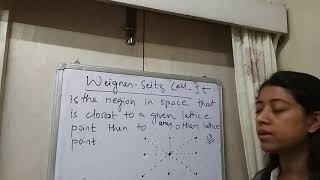 Weigner-Seitz Cell- It
is the region in space that
is closest to a given lattice
point than to any other lattice
point